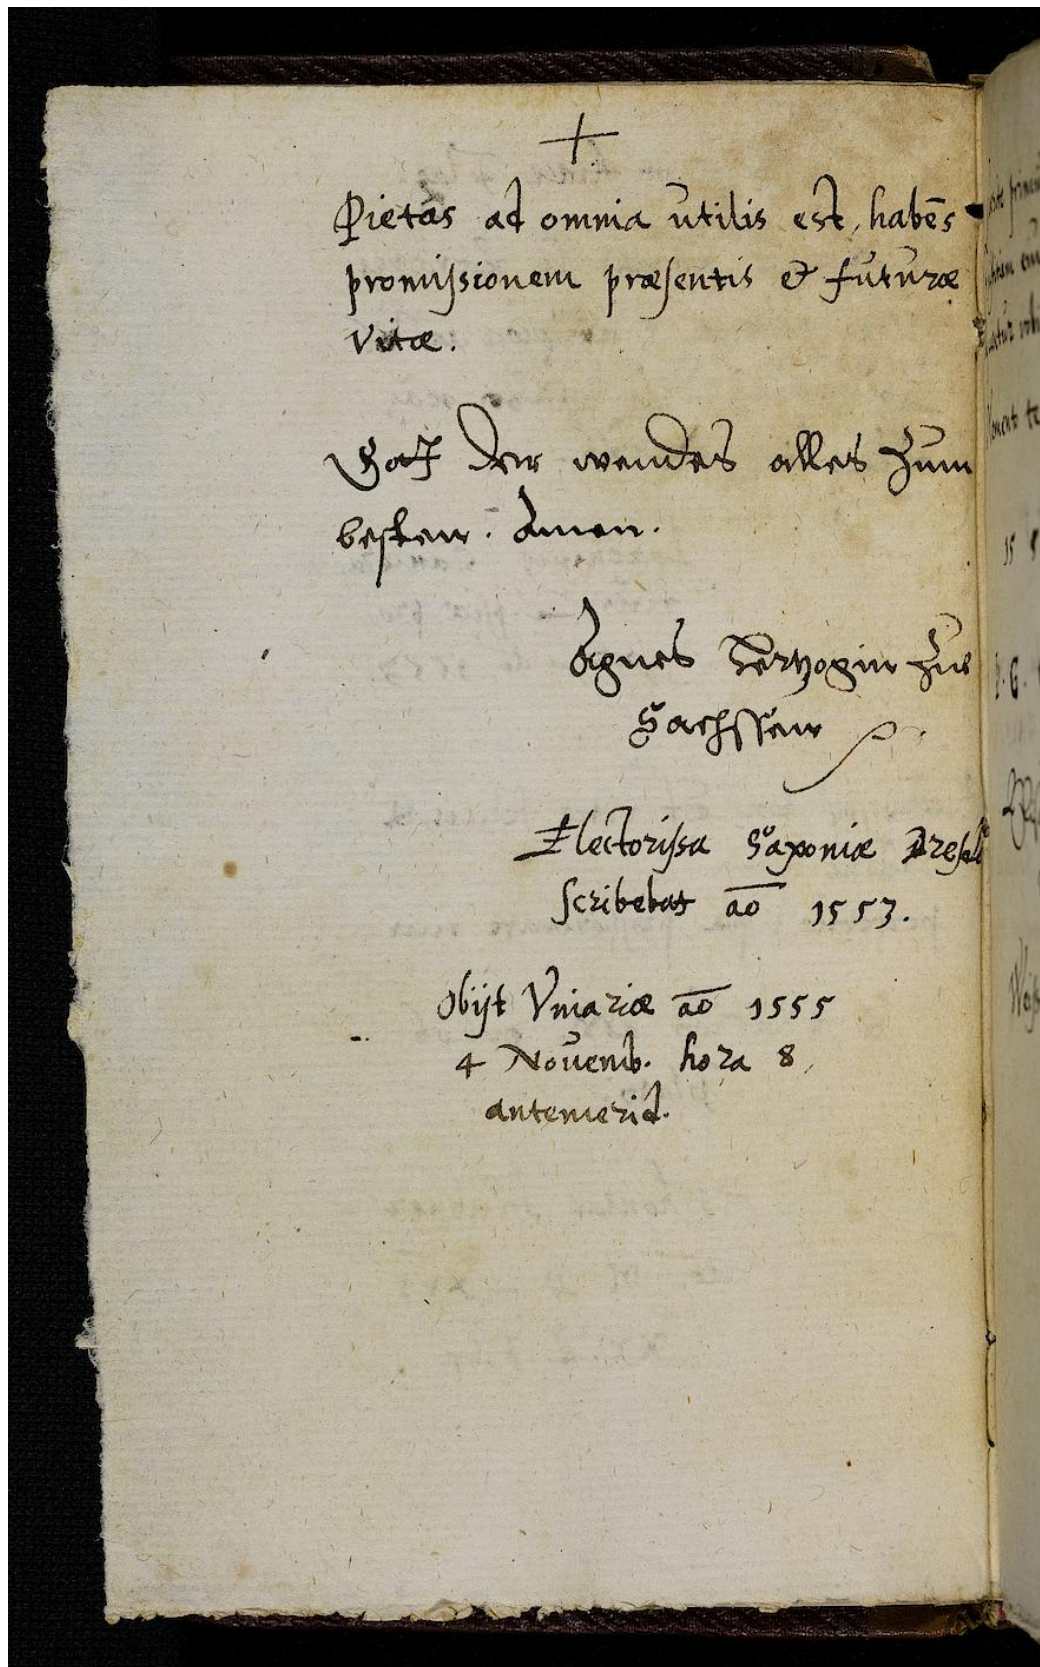 Pietas ad omnia utilis est, habēs
promissionem præsentis & futuræ
vitæ.
Gott der wendes alles zum
besten. Amen.
Agnes Hertzogin zue
Sachssen
Electorissa Saxoniæ
scribebat aō 1553.
Obijt Vniariæ aō 1555
4 Novemb. hora 8,
antemerid.